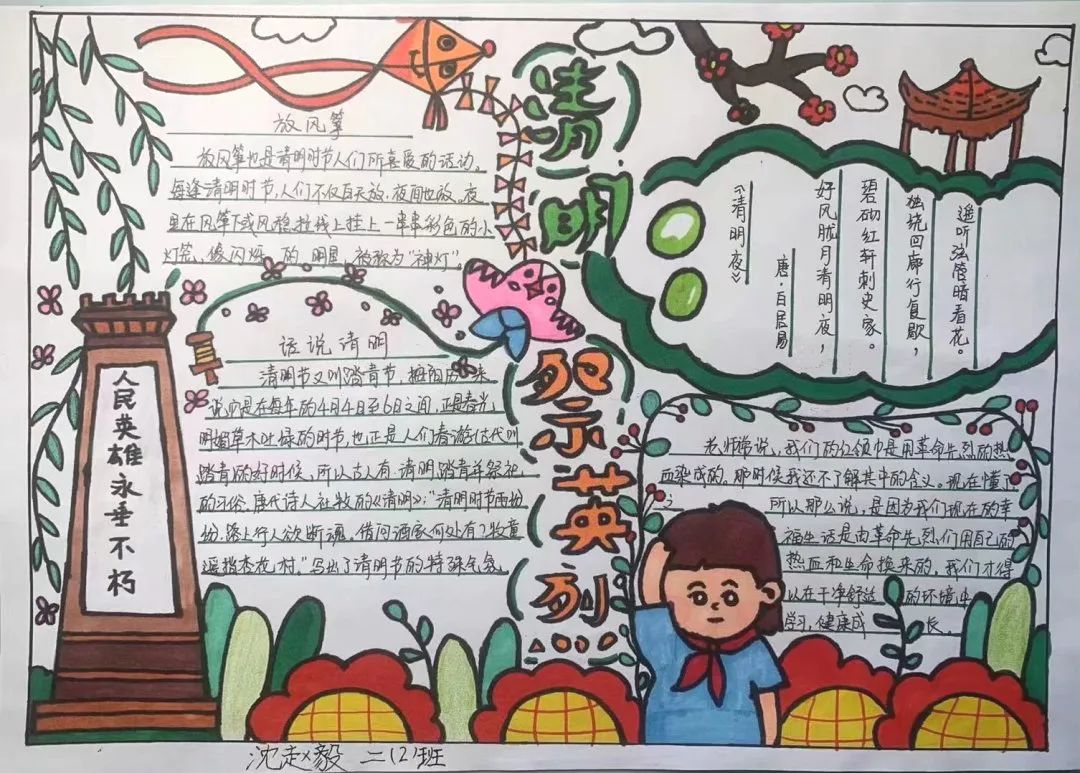 清明
祭示英烈
放风筝
放风筝也是清明时节人们所喜爱的活动。
每逢清明时节,人们不仅白天放,夜间也放。夜
里在风筝下或风稳拉线上挂上一串串彩色的小
灯笼,像闪烁的明星,被称为“神灯”。
话说清明
清明节又叫踏青节,
说它是在每年的4月4日至6日之间,正是春光
明媚草木吐绿的时节,也正是人们春游(古代叫
踏青)的好时候,所以古人有清明踏青并祭祀
的习俗。唐代诗人杜牧的《清明》:“清明时节雨纷
纷,路上行人欲断魂。借问酒家何处有?牧童
遥指杏花村。”写出了清明节的特殊气氛。
人民英雄永垂不朽
《清明夜》
唐·白居易
好风胧月清明夜,
碧砌红轩刺史家。
独绕回廊行复歇,
遥听弦管暗看花。
老师常说,我们的红领巾是用革命先烈的热
血染成的。那时候我还不了解其中的含义。现在懂了
之所以那么说,是因为我们现在的幸
福生活是由革命先烈们用自己的
热血和生命换来的,我们才得
以在干净舒适的环境中
学习,健康成长。
沈赵毅 二(2)班